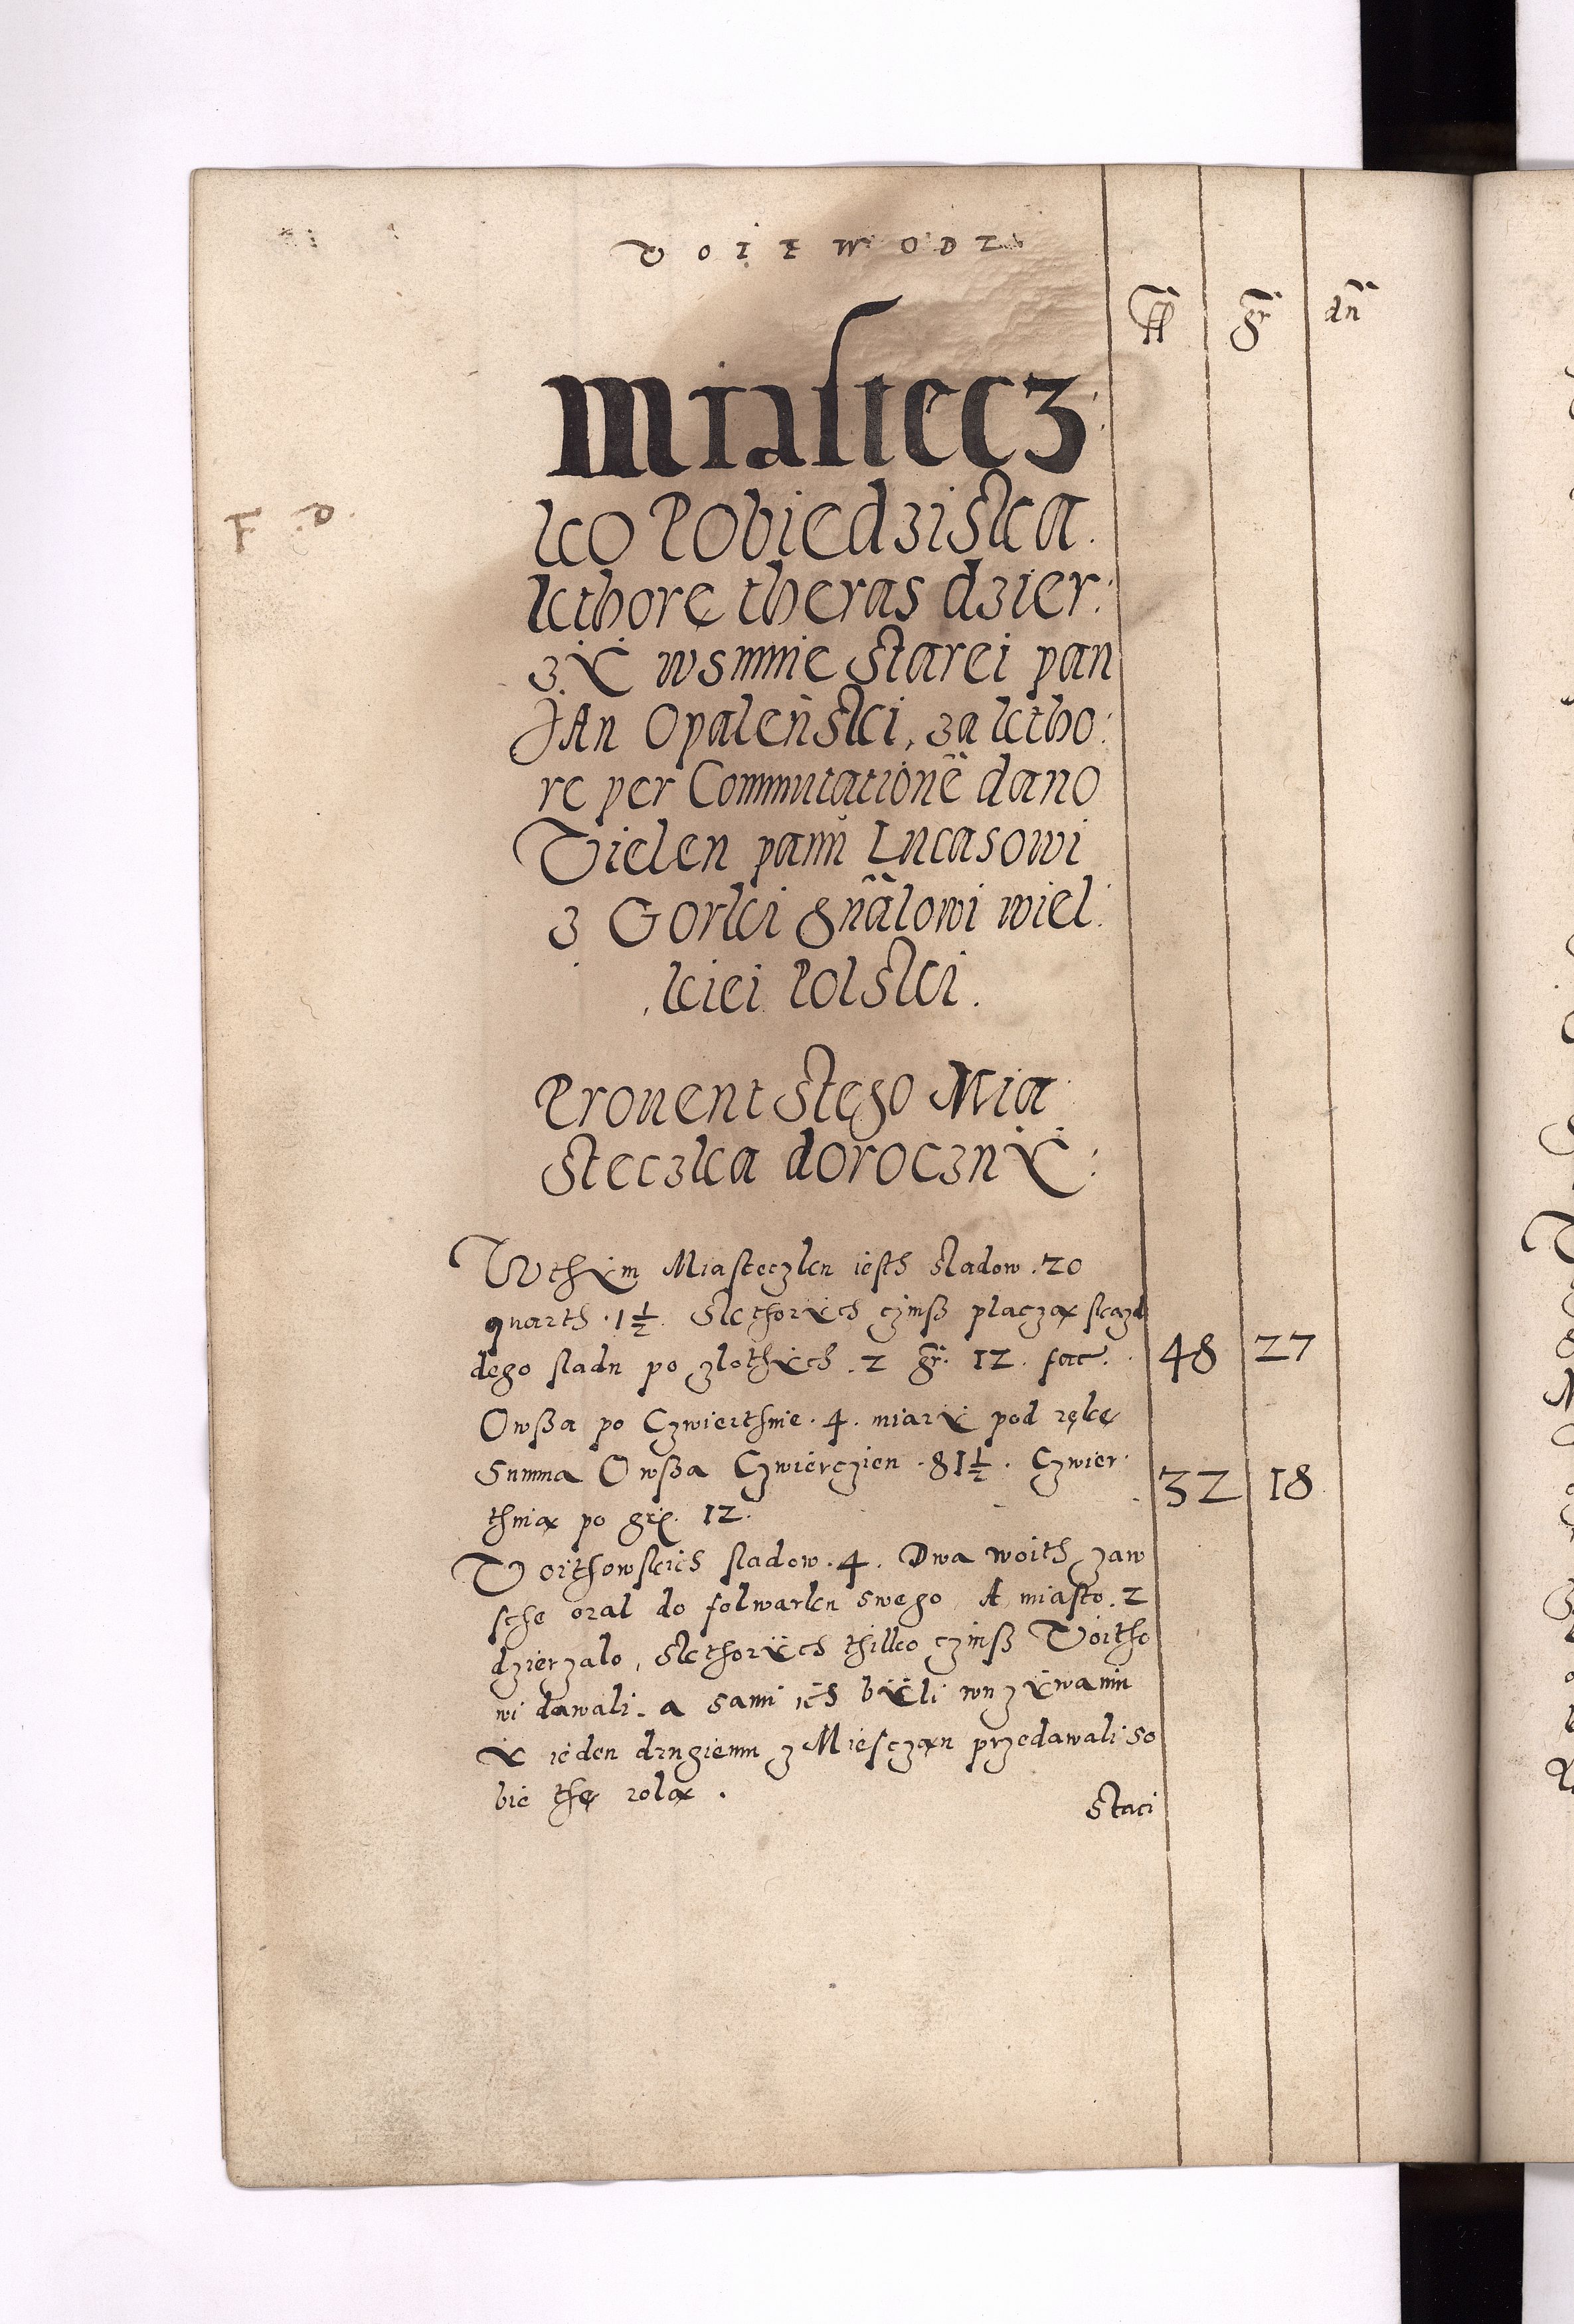 VOIEWODZ
fl gr dn
Miastecz
ko Pobiedziska
kthore theras dzier:
zÿ wsumie starei pan
JAn Opaleński, za ktho:
re per Commutationē dano
Vielen panu Lucasowi
z Gorki gn̄alowi wiel:
kiei Polski.
F .D.
Prouent stego Mia
steczka dorocznÿ:
Wthÿm Miasteczku iesth sladow .20
quarth .1½. Skthorÿch czinß placzą skazd
dego sladu po zlothÿch .2 gr. 12. fac. 48 27
Owßa po Czwierthnie .4. miarÿ pod rękę
Summa Owßa Czwierczien .81½. Czwier
thnią po gr. 12. 32 18
Voithowskich sladow .4. Dwa woith zaw
sche oral do folwarku swego A miasto .2
dzierzalo, Skthorÿch thilko czinß Voitho
wi dawali. a sami ich bÿli wuzÿwaniu
ÿ ieden drugiemu z Miesczan przedawali so
bie thę rolą.
Staci